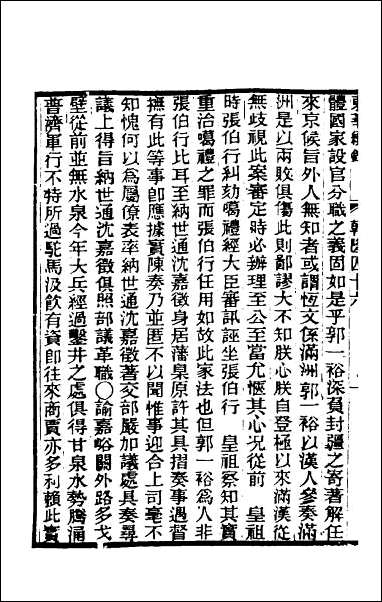 東華續錄 乾隆四十六 一
體國家設官分職之義固如是乎郭一裕深負封疆之寄著解任
來京候旨外人無知者或謂恆文係滿洲郭一裕以漢人參奏滿
洲是以兩敗俱傷此則鄙謬大不知朕心朕自登極以來滿漢從
無歧視此案審定時必辦理至公至當尤愜其心況從前　皇祖
時張伯行糾劾噶禮經大臣審訊誣坐張伯行　皇祖察知其實
重治噶禮之罪而張伯行任用如故此家法也但郭一裕為人非
張伯行比耳至納世通沈嘉徵身居藩臬原許其具摺奏事遇督
撫有此等事卽應據實陳奏乃並匿不以聞惟事迎合上司毫不
知愧何以為屬僚表率納世通沈嘉徵著交部嚴加議處具奏尋
議上得旨納世通沈嘉徵俱照部議革職○諭嘉峪關外路多戈
壁從前並無水泉今年大兵經過鑿井之處俱得甘泉水勢騰涌
普濟軍行不特所過駝馬汲飲有資卽往來商賈亦多利賴此實